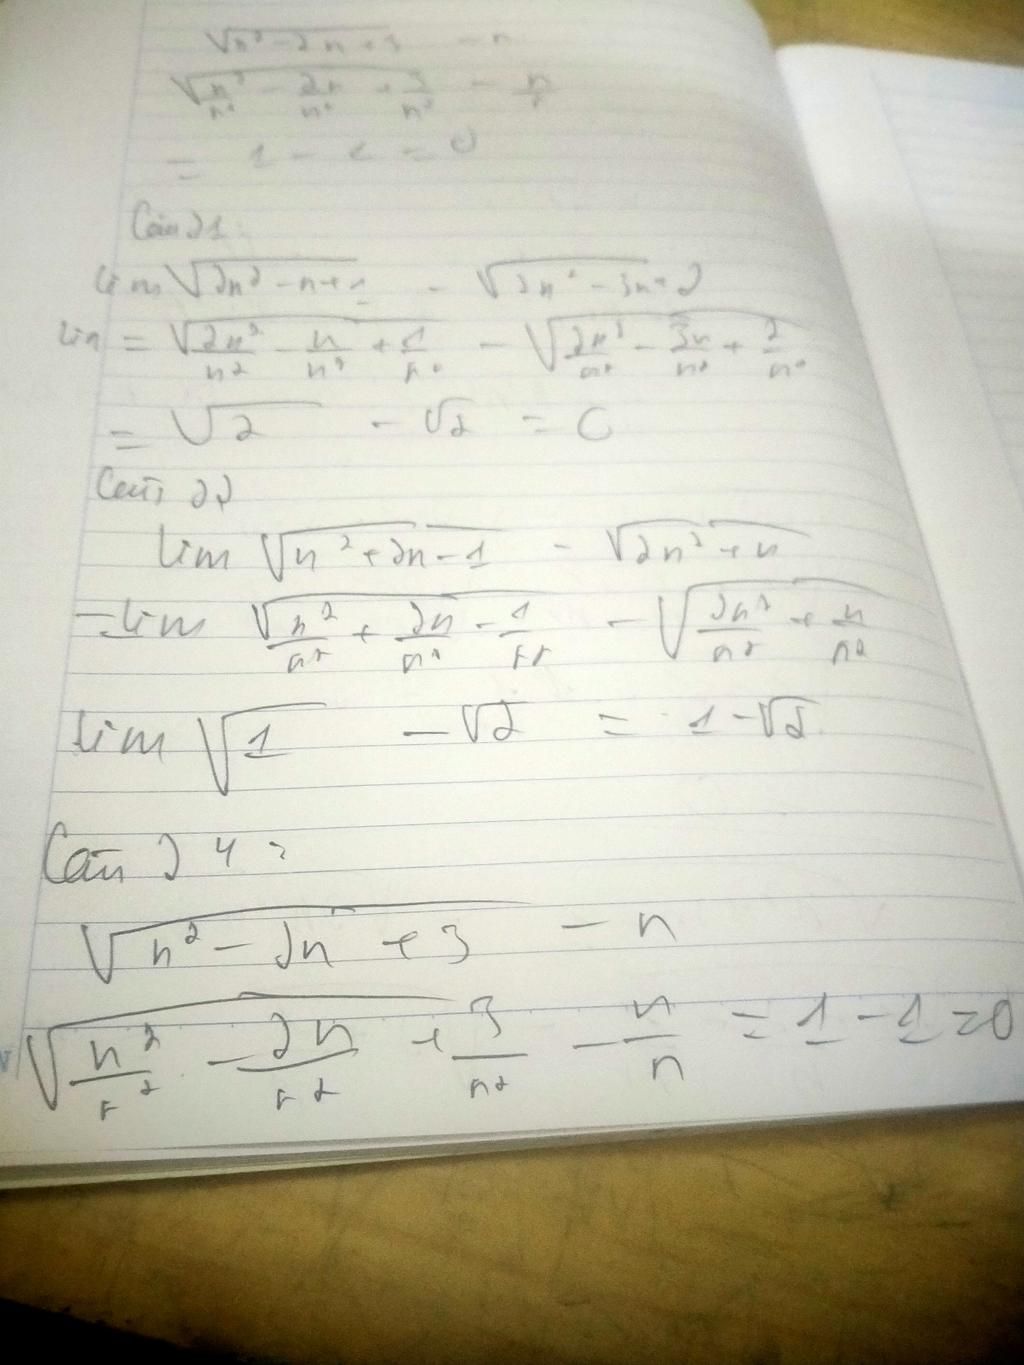 √(n² - 2n + 3) - n
√(n²/n² - 2n/n² + 3/n²) - n/n
= 1 - 1 = 0
Câu 21:
lim √(2n² - n + 1) - √(2n² - 3n + 2)
lim = √(2n²/n² - n/n² + 1/n²) - √(2n²/n² - 3n/n² + 2/n²)
= √2 - √2 = 0
Câu 22
lim √(n² + 2n - 1) - √(2n² + n)
= lim √(n²/n² + 2n/n² - 1/n²) - √(2n²/n² + n/n²)
lim √1 - √2 = 1 - √2
Câu 24:
√(n² - 2n + 3) - n
√(n²/n² - 2n/n² + 3/n²) - n/n = 1 - 1 = 0